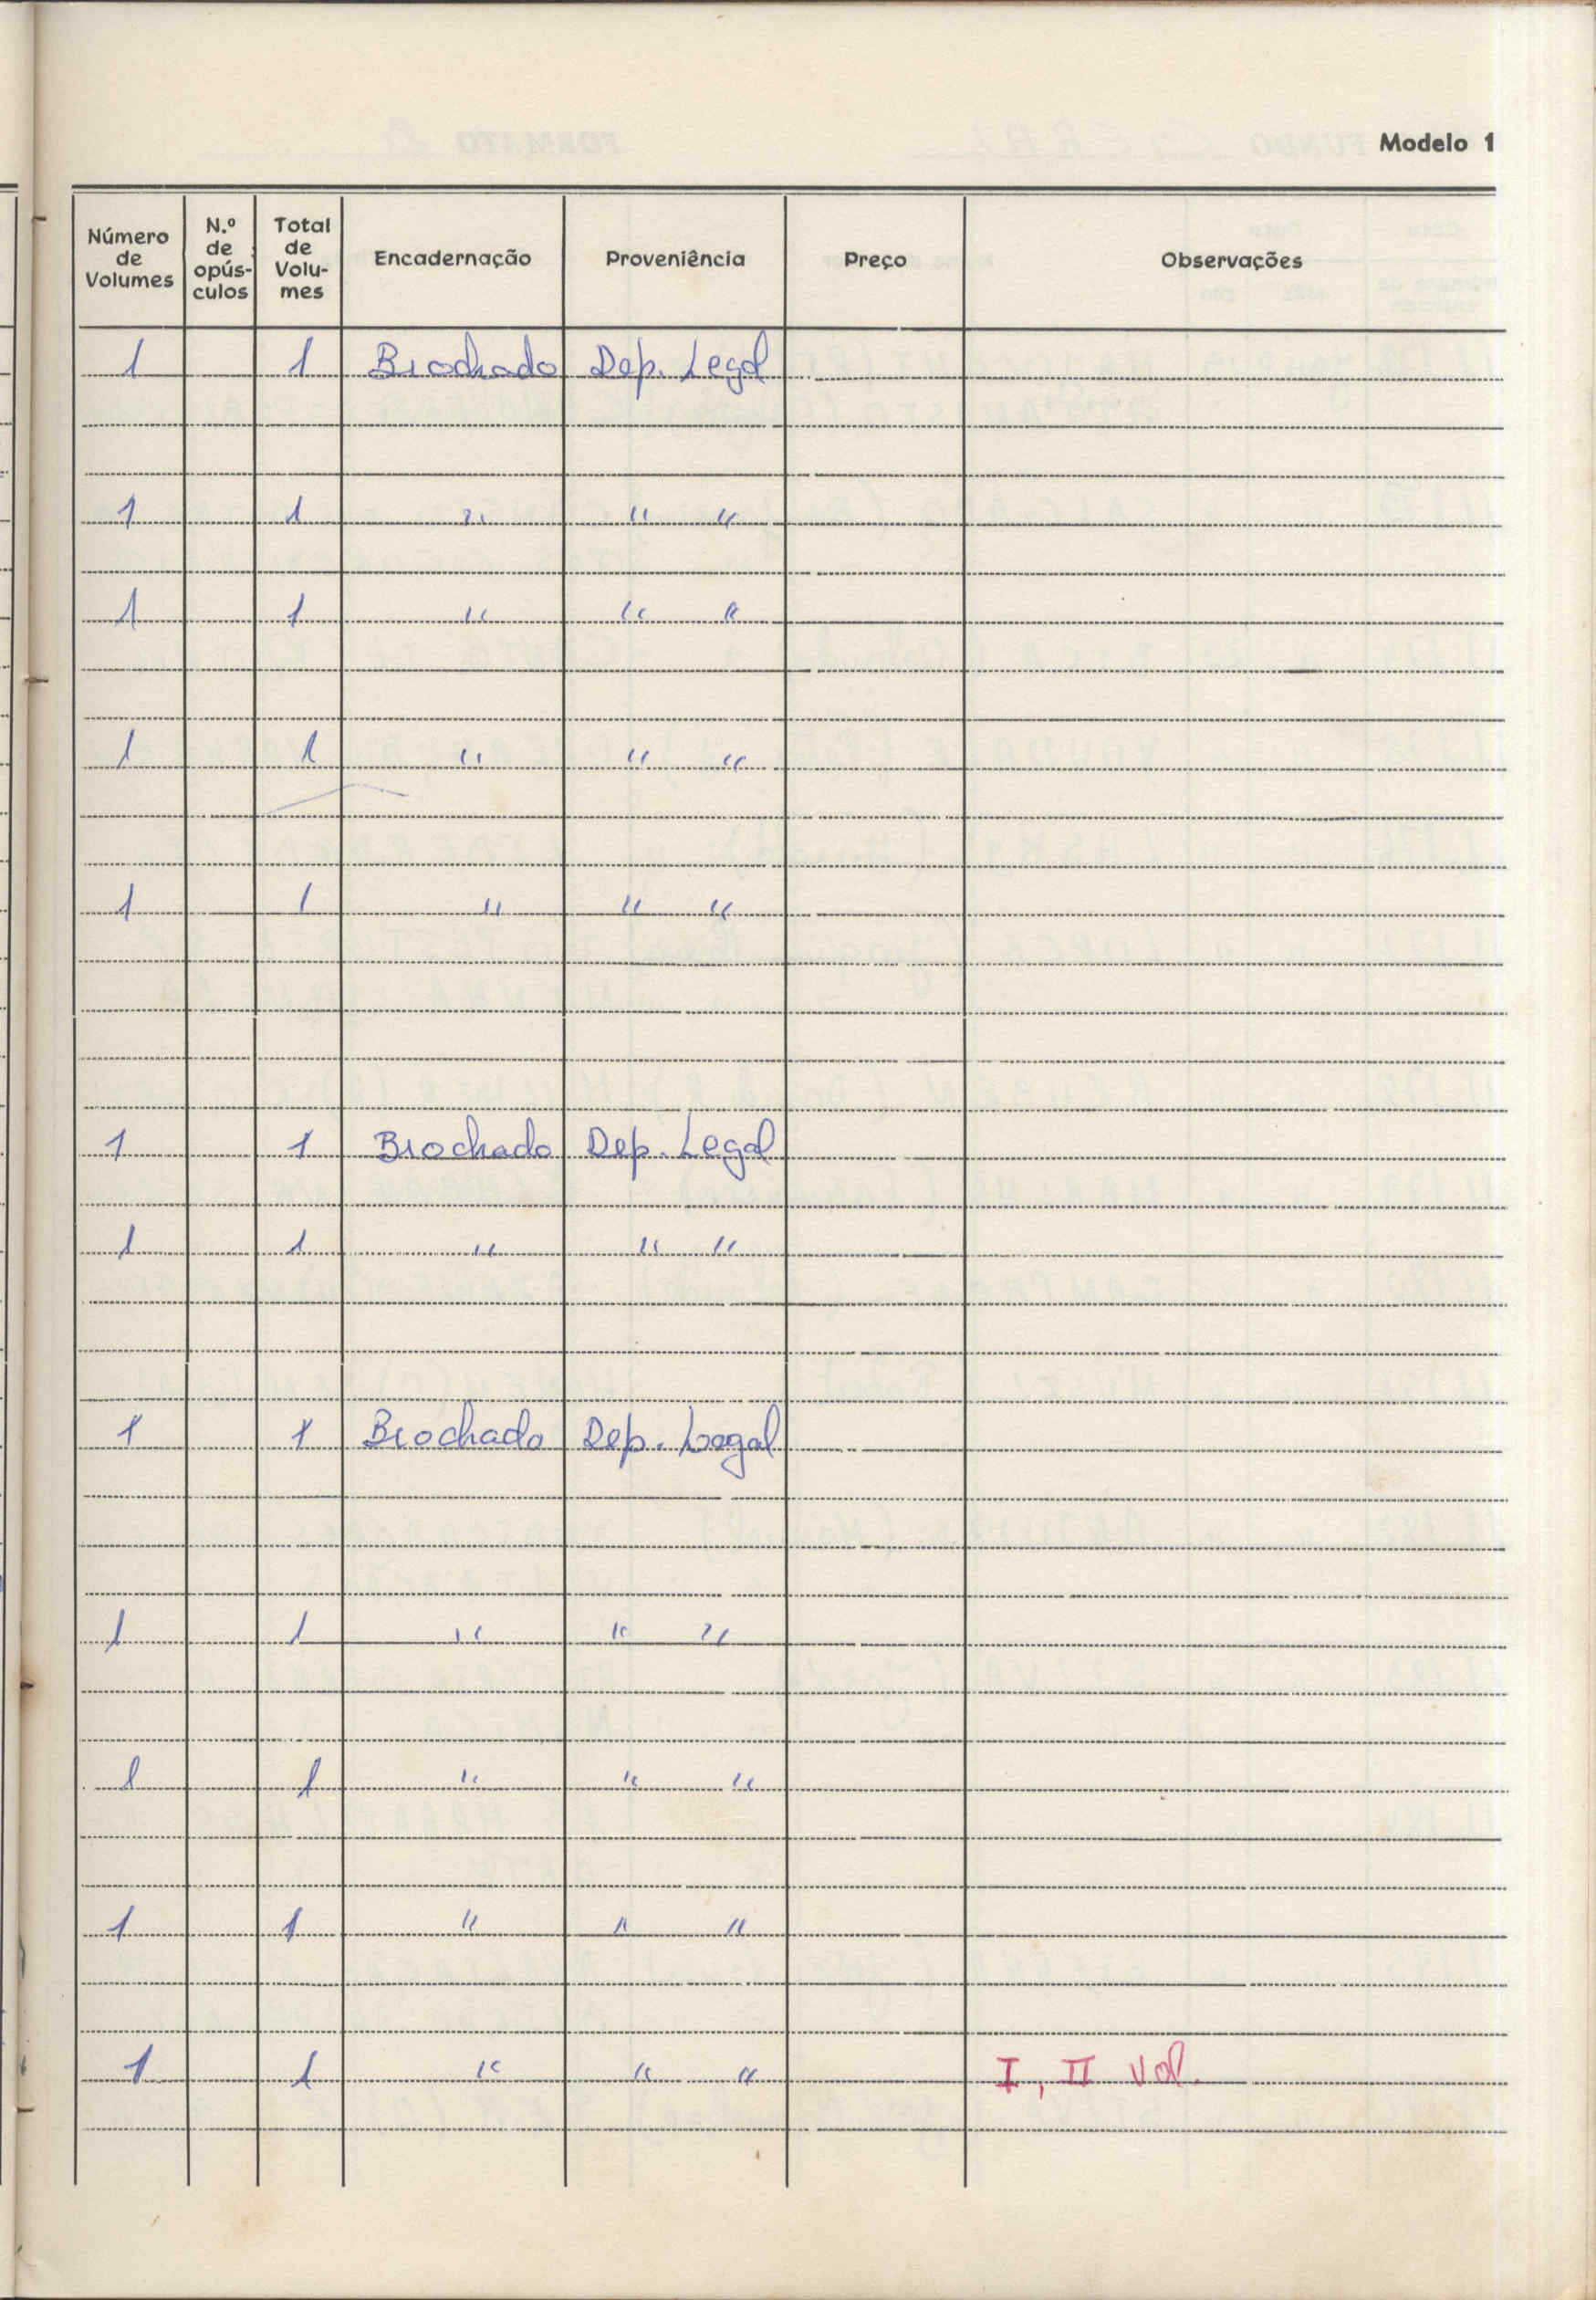 Modelo 1
Número de Volumes | N.º de opús-culos | Total de Volu-mes | Encadernação | Proveniência | Preço | Observações
1 | | 1 | Brochado | Dep. Legal
1 | | 1 | " | " "
1 | | 1 | " | " "
1 | | 1 | " | " "
1 | | 1 | " | " "
1 | | 1 | Brochado | Dep. Legal
1 | | 1 | " | " "
1 | | 1 | Brochado | Dep. Legal
1 | | 1 | " | " "
1 | | 1 | " | " "
1 | | 1 | " | " "
1 | | 1 | " | " " | | I, II vol.